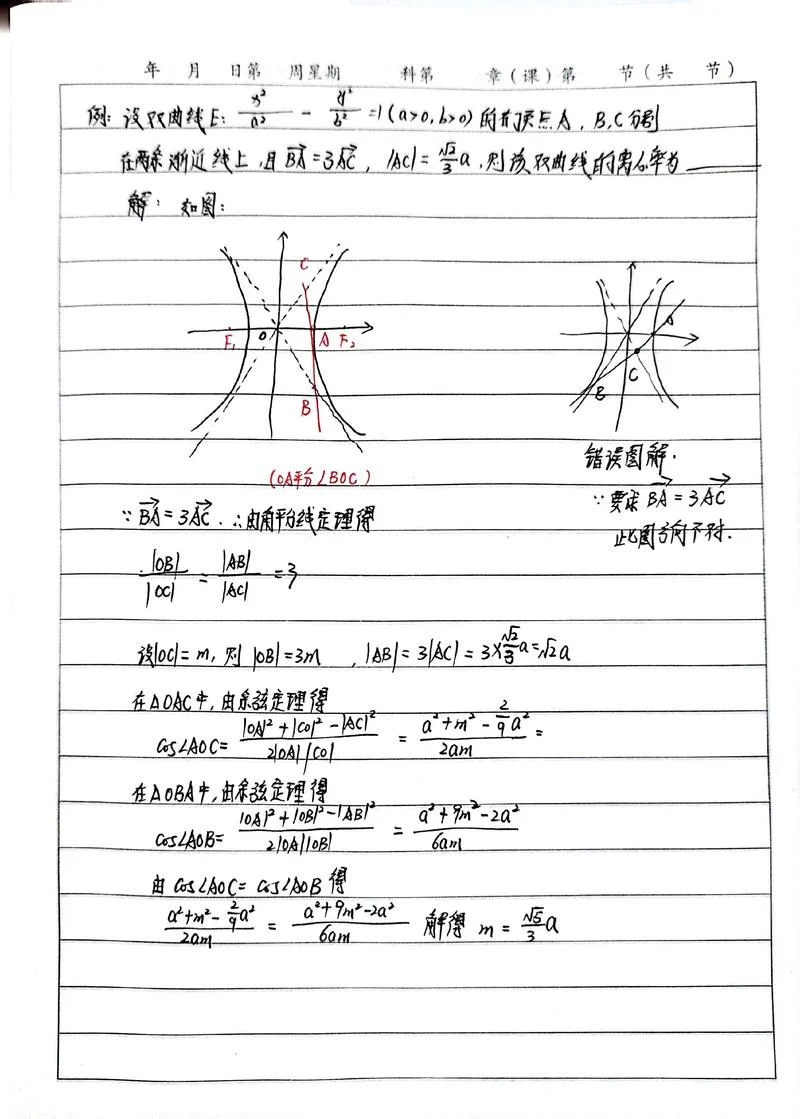 年 月 日第 周星期 科第 章(课)第 节(共 节)
例: 设双曲线E: x²/a² - y²/b² =1(a>0,b>0)的右顶点A, B,C分别
在两条渐近线上,且BA⃗=3AC⃗, |AC|=√2/3 a,则该双曲线的离心率为______
解: 如图:
C
F₁ O A F₂
B
A
C
B
(OA平分∠BOC)
错误图解.
∵要求BA⃗=3AC⃗
此图方向不对.
∵BA⃗=3AC⃗ ∴由角平分线定理得
|OB|/|OC| = |AB|/|AC| =3
设|OC|=m, 则|OB|=3m ,|AB|=3|AC|=3×√2/3 a=√2a
在△OAC中,由余弦定理得
cos∠AOC= (|OA|²+|CO|²-|AC|²)/(2|OA||CO|) = (a²+m²-2/9 a²)/(2am) =
在△OBA中,由余弦定理得
cos∠AOB= (|OA|²+|OB|²-|AB|²)/(2|OA||OB|) = (a²+9m²-2a²)/(6am)
由cos∠AOC=cos∠AOB得
(a²+m²-2/9 a²)/(2am) = (a²+9m²-2a²)/(6am) 解得 m=√5/3 a